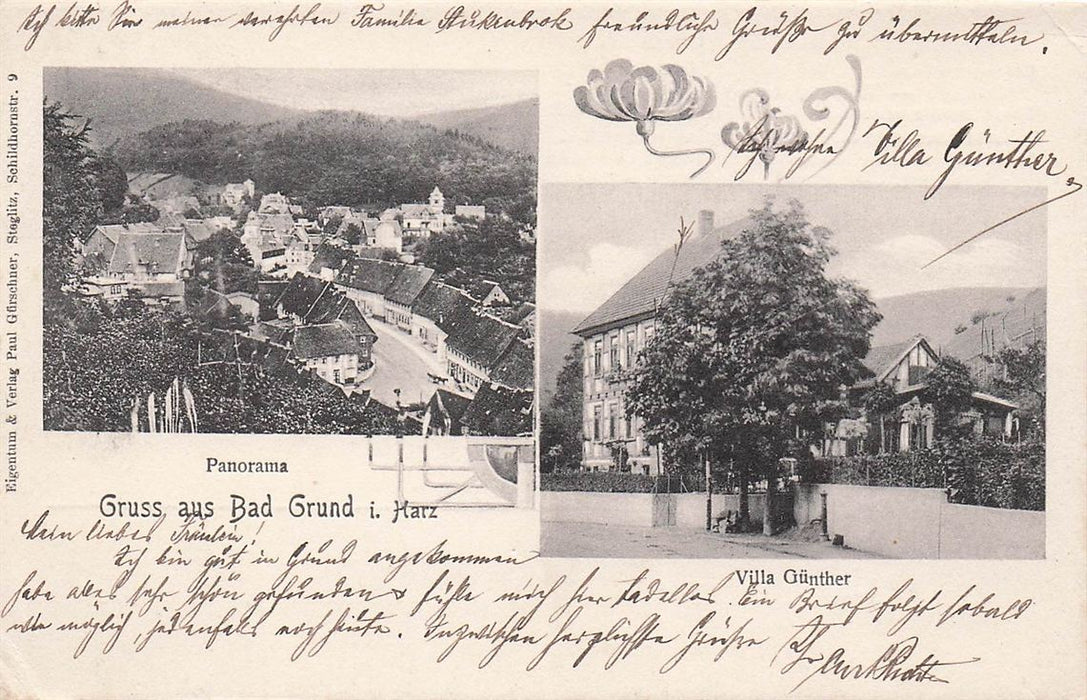 Ich bitte Sie meiner verehrten Familie Stukenbrok freundliche Grüße zu übermitteln.
Ich wohne Villa Günther
Eigentum & Verlag Paul Gürschner, Steglitz, Schildhornstr. 9
Panorama
Gruss aus Bad Grund i. Harz
Villa Günther
Mein liebes Fräulein!
Ich bin gut in Grund angekommen
habe alles sehr schön gefunden & fühle mich hier tadellos. Ein Brief folgt sobald
wie möglich, jedenfalls noch heute. Inzwischen herzlichste Grüße Ihr